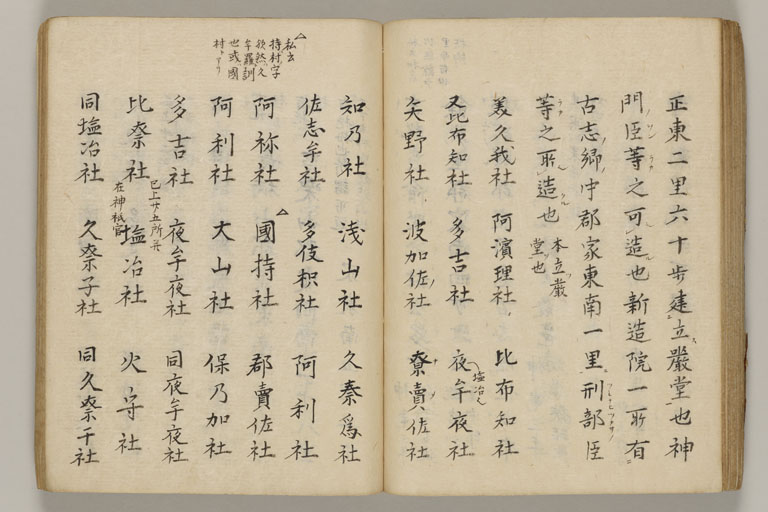 正東二里六十步建立嚴堂也神
門臣等之可造也新造院一所有
古志鄉中郡家東南一里刑部臣
等之所造也 本立嚴堂也
美久我社 阿濱理社 比布知社
又比布知社 多吉社 夜牟夜社
矢野社 波加佐社 賣佐社
知乃社 浅山社 久奈爲社
佐志牟社 多伎枳社 阿利社
阿祢社 國持社 郡賣佐社
阿利社 大山社 保乃加社
多吉社 夜牟夜社 同夜牟夜社
比奈社 已上廿五所并在神祇官 塩冶社 火守社
同塩冶社 久奈子社 同久奈子社
私云
持村字
牟羅訓
也或國
村トアリ